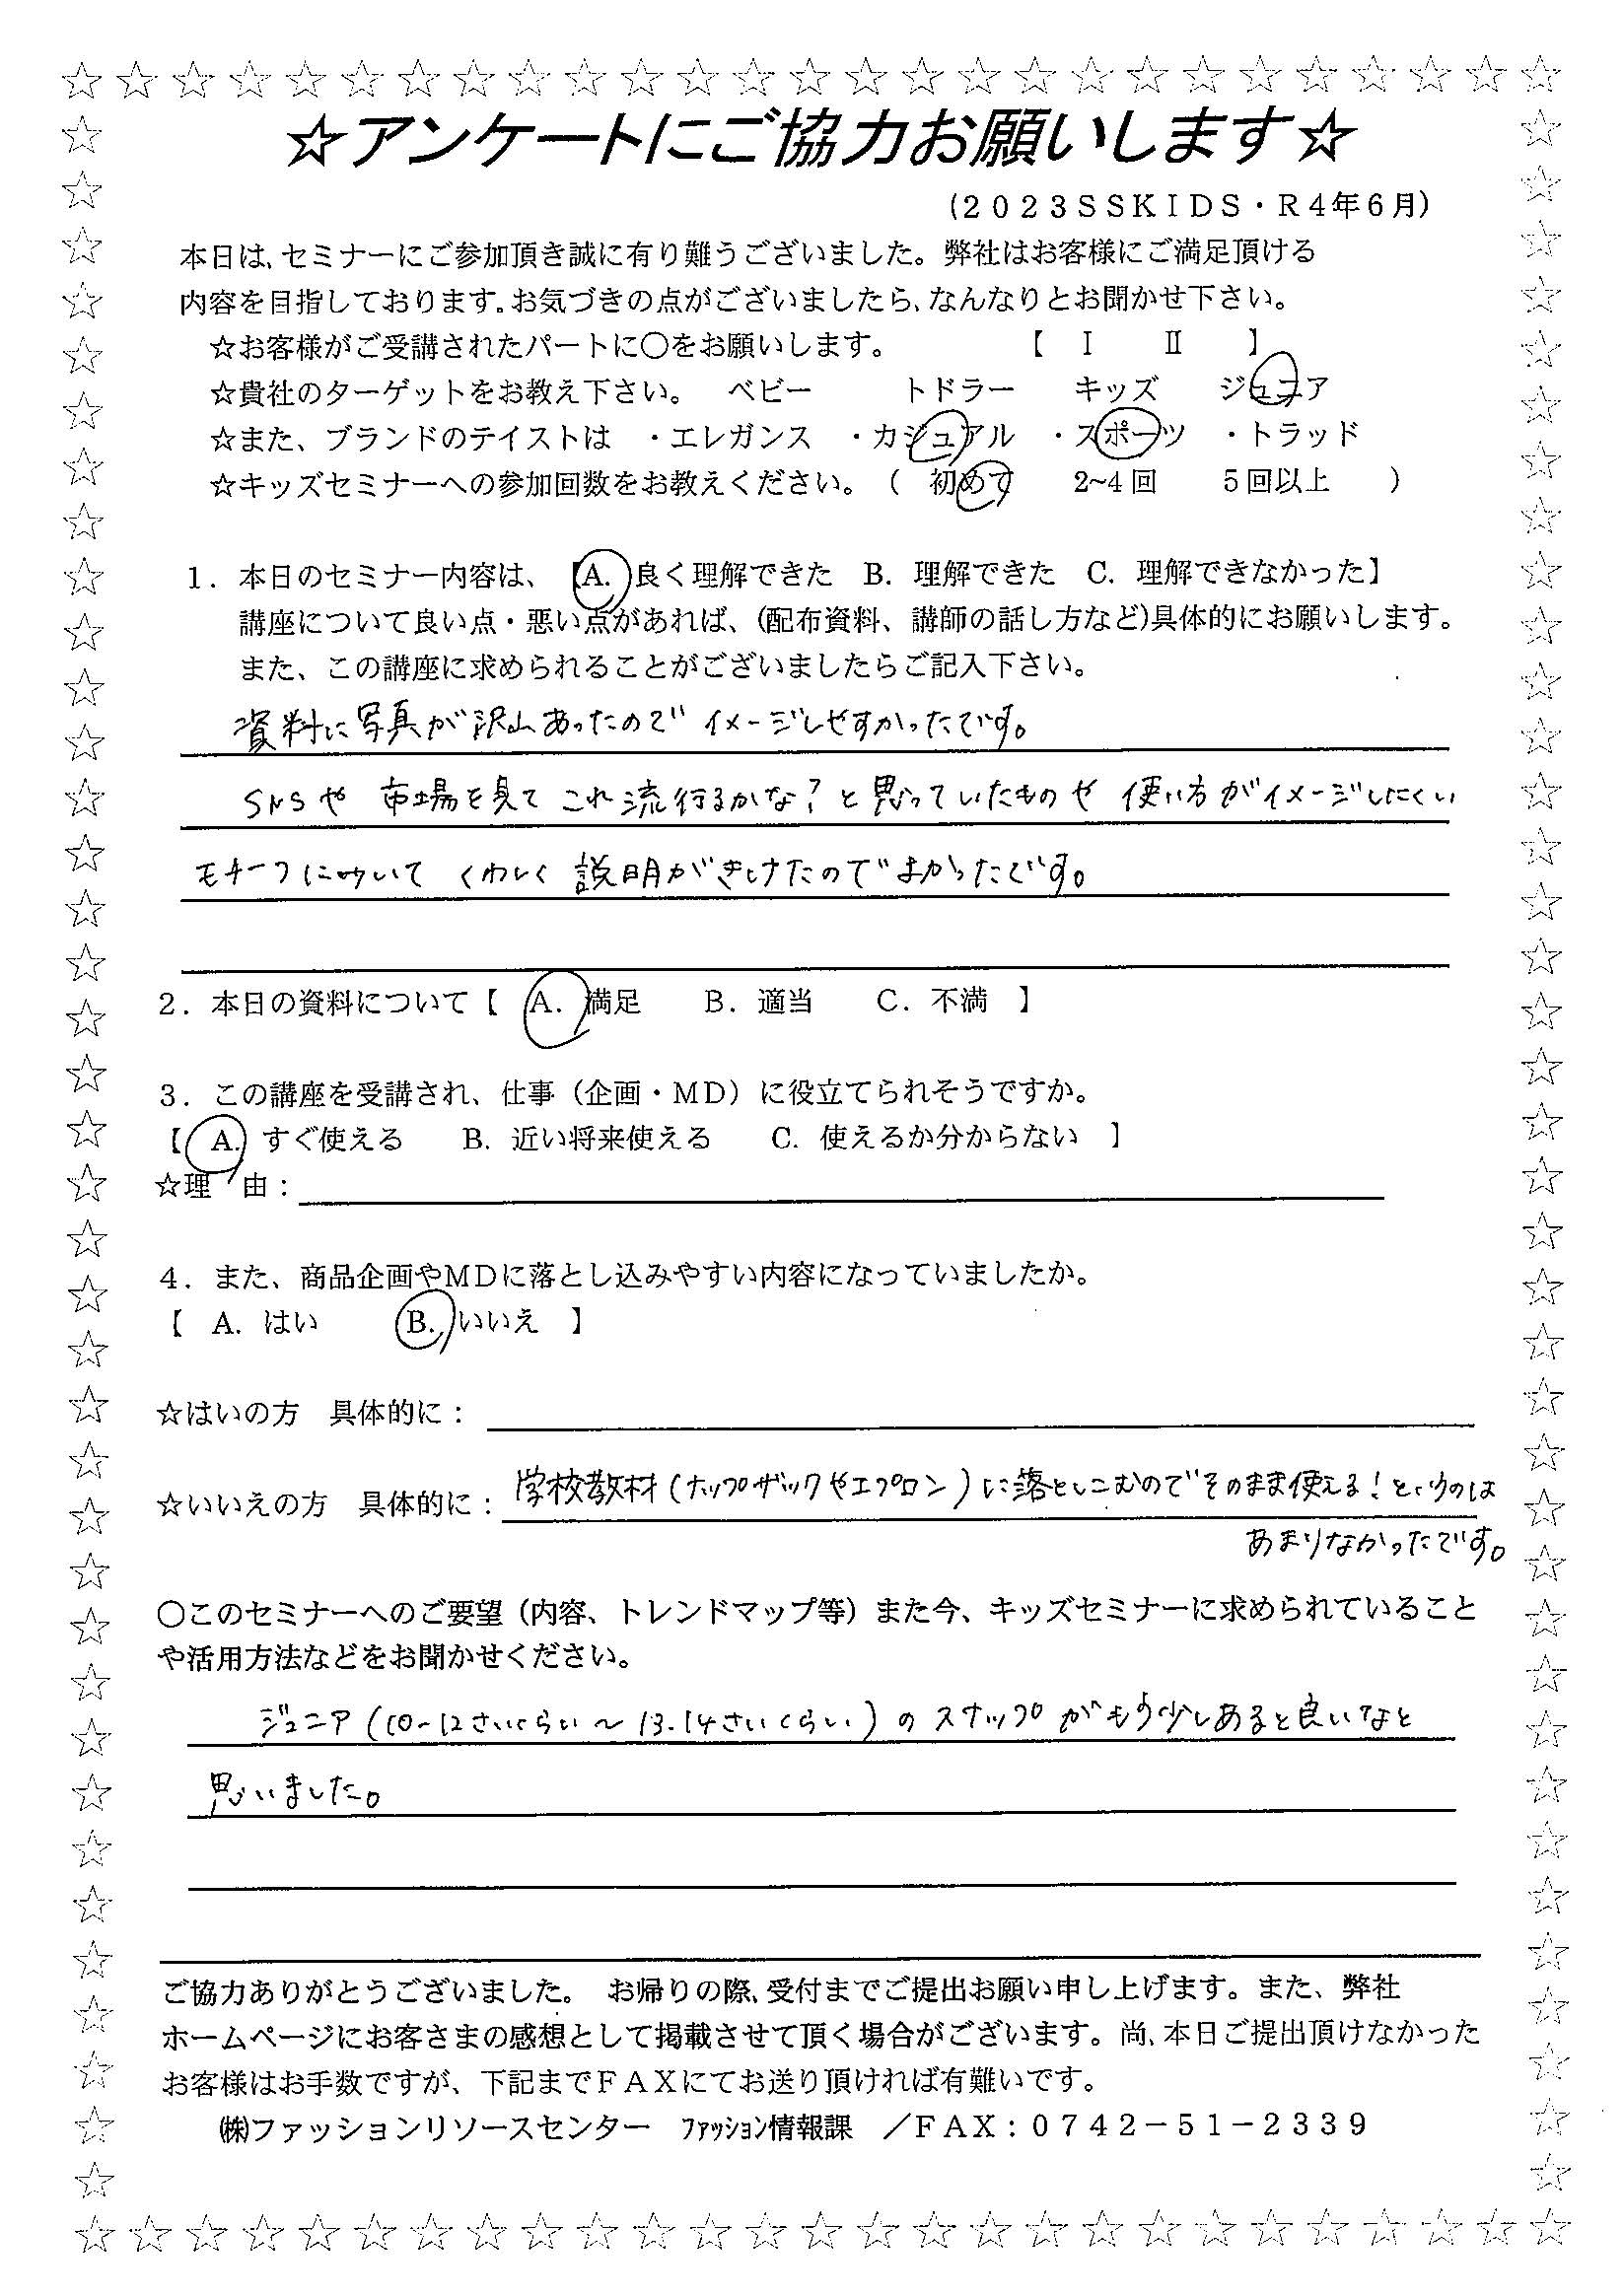 ☆アンケートにご協力お願いします☆
(2023SSKIDS・R4年6月)
本日は、セミナーにご参加頂き誠に有り難うございました。弊社はお客様にご満足頂ける
内容を目指しております。お気づきの点がございましたら、なんなりとお聞かせ下さい。
☆お客様がご受講されたパートに〇をお願いします。 【 Ⅰ Ⅱ 】
☆貴社のターゲットをお教え下さい。 ベビー トドラー キッズ ジュニア
☆また、ブランドのテイストは ・エレガンス ・カジュアル ・スポーツ ・トラッド
☆キッズセミナーへの参加回数をお教えください。( 初めて 2~4回 5回以上 )
1.本日のセミナー内容は、【A. 良く理解できた B. 理解できた C. 理解できなかった】
講座について良い点・悪い点があれば、(配布資料、講師の話し方など)具体的にお願いします。
また、この講座に求められることがございましたらご記入下さい。
資料に写真が沢山あったのでイメージしやすかったです。
SNSや 市場を見て これ流行るかな?と思っていたものや 使い方がイメージしにくい
モチーフについて くわしく 説明がきけたのでよかったです。
2.本日の資料について【 A. 満足 B. 適当 C. 不満 】
3.この講座を受講され、仕事(企画・MD)に役立てられそうですか。
【 A. すぐ使える B. 近い将来使える C. 使えるか分からない 】
☆理 由:
4.また、商品企画やMDに落とし込みやすい内容になっていましたか。
【 A. はい B. いいえ 】
☆はいの方 具体的に:
☆いいえの方 具体的に: 学校教材(ナップザックやエプロン)に落としこむのでそのまま使える!というのは
あまりなかったです。
〇このセミナーへのご要望(内容、トレンドマップ等)また今、キッズセミナーに求められていること
や活用方法などをお聞かせください。
ジュニア(10-12さいくらい~13.14さいくらい)のスナップがもう少しあると良いなと
思いました。
ご協力ありがとうございました。 お帰りの際、受付までご提出お願い申し上げます。また、弊社
ホームページにお客さまの感想として掲載させて頂く場合がございます。尚、本日ご提出頂けなかった
お客様はお手数ですが、下記までFAXにてお送り頂ければ有難いです。
㈱ファッションリソースセンター ファッション情報課 /FAX:0742-51-2339